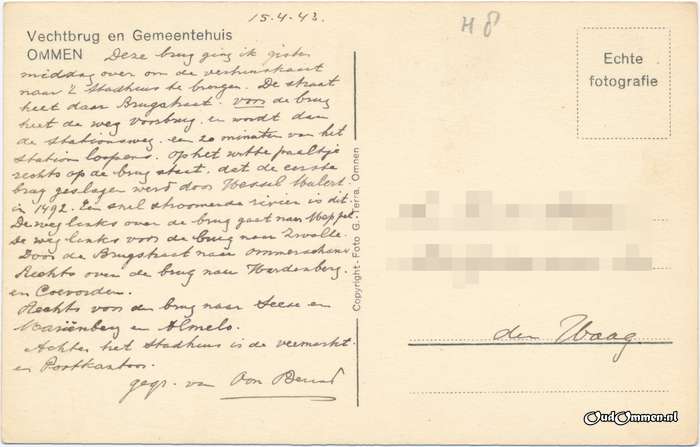 15.4.43.
H 8
Vechtbrug en Gemeentehuis
OMMEN
Deze brug ging ik gister
middag over om de verhuiskaart
naar 't Stadhuis te brengen. De straat
heet daar Brugstraat. voor de brug
heet de weg voorbrug. en wordt dan
de stationsweg. een 20 minuten van het
station loopens. Op het witte paaltje
rechts op de brug staat. dat de eerste
brug geslagen werd door Wessel
in 1492. Een snel stroomende rivier is dit.
De weg links over de brug gaat naar Meppel.
De weg links voor de brug naar Zwolle.
Door de Brugstraat naar Ommerschans
Rechts over de brug naar Hardenberg.
en Coevorden.
Rechts voor den brug naar en
Mariënberg en Almelo.
Achter het Stadhuis is de veemarkt.
en Postkantoor.
gegr. van
Copyright - Foto G. Terra, Ommen
Echte
fotografie
den Haag
OudOmmen.nl